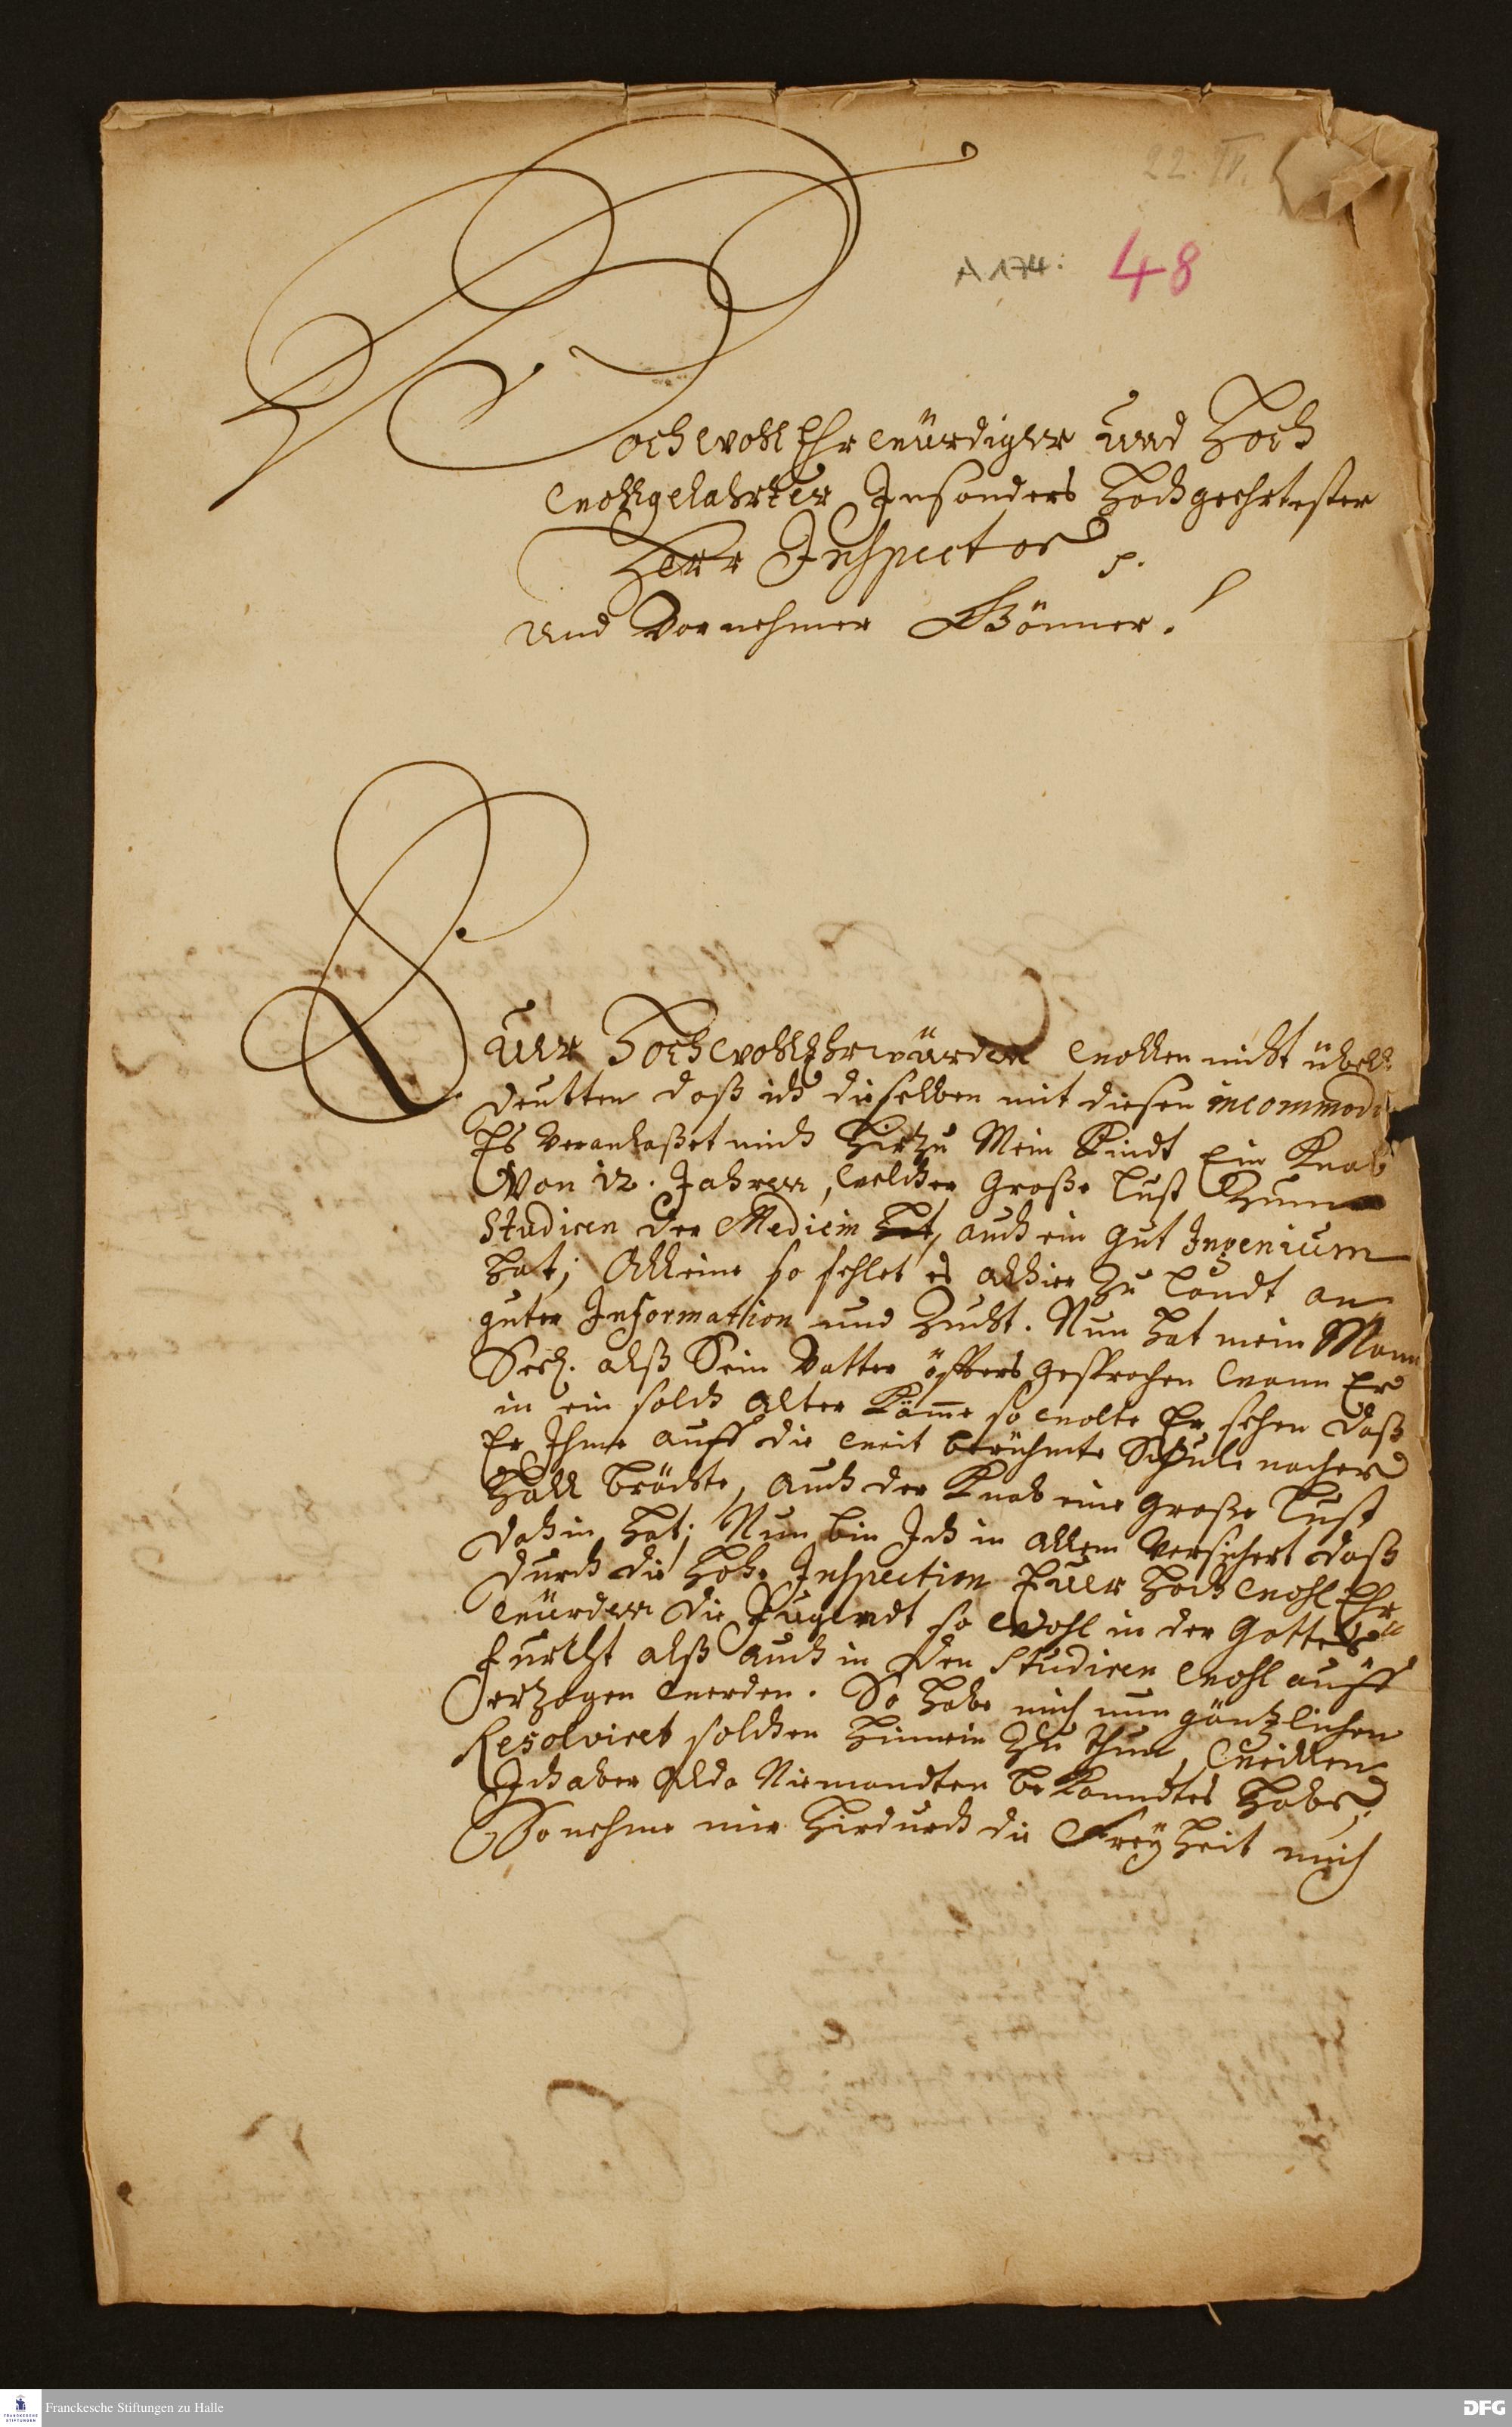 22. IV.
A 174: 48
Hochwohl Ehrwürdiger und Hoch
wohlgelahrter Insonders Hochgeehrtester
Herr Inspector p.
und Vornehmer Gönner!
Euer HochwohlEhrwürden wollen nicht übell
deutten daß ich dieselben mit diesen incommodi
Es veranlaßet mich hirzu Mein Kindt Ein Knab
Von 12. Jahren, welcher Große Lust Zum
Studiren der Medicin hat, auch ein gut Ingenium
hat; Alleine so fehlet es alhier zu Landt an
guter Information und Zucht. Nun hat mein Mann
Seel. alß Sein Vatter öffters gesprochen wann Er
in ein solch alter Käme so wolte Er sehen daß
Er Ihme auff die weit berühmte Schule nacher
Hall brächte, auch der Knab eine Große Lust
dahin hat; Nun bin Ich in allem versichert daß
durch die hohe Inspection Euer Hoch wohl Ehr
würden die Jugendt so wohl in der Gottes
furcht alß auch in den Studiren wohl auff
erzogen werden. So habe mich nun gäntzlichen
Resolviret solchen hinnein zu thun, weillen
Ich aber Alda Niemandten bekanndtes habe,
So nehme mir hirdurch die Freyheit mich
Franckesche Stiftungen zu Halle
DFG